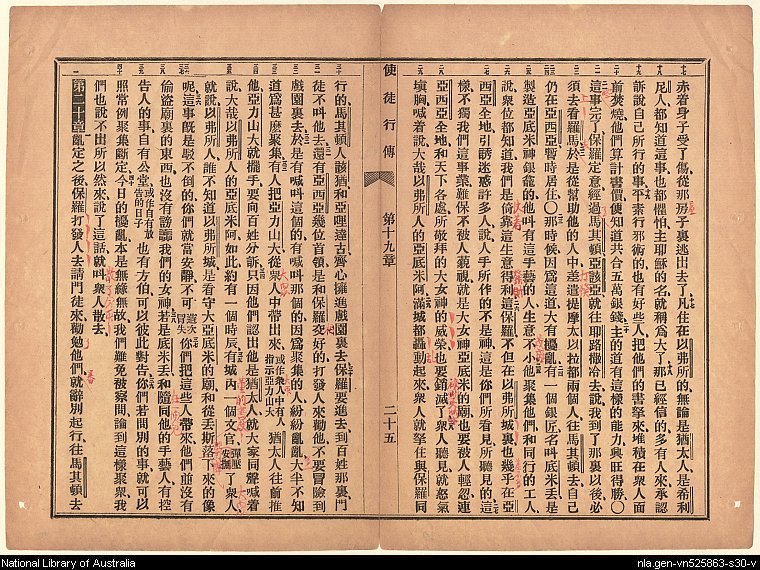 赤着身子受了傷從那房子裏逃出去了凡住在以弗所的無論是猶太人是希利
尼人都知道這事也都懼怕主耶穌的名就稱爲大了那已經信的多有人來承認
訴說自己所行的事平素行邪術的也有好些人把他們的書拏來堆積在衆人面
前焚燒他們算計書價便知道共合五萬銀錢主的道有這樣的能力興旺得勝〇
這事完了保羅定意經過馬其頓亞該亞就往耶路撒冷去說我到了那裏以後必
須去看羅馬於是從幫助他的人中差遣提摩太以拉都兩個人往馬其頓去自己
仍在亞西亞暫時居住〇那時候因爲這道大有擾亂有一個銀匠名叫底米丢是
製造亞底米神銀龕的他叫有這手藝的人生意不小他聚集他們和同行的工人
說衆位都知道我們是倚靠這生意得利這保羅不但在以弗所城裏也幾乎在亞
西亞全地引誘迷惑許多人說人手所作的不是神這是你們所看見所聽見的這
樣不獨我們這事業難保不被人藐視就是大女神亞底米的廟也要被人輕忽連
亞西亞全地和天下各處所敬拜的大女神的威榮也要銷滅了衆人聽見就怒氣
塡胸喊着說大哉以弗所人的亞底米阿滿城都轟動起來衆人就拏住與保羅同
使徒行傳
第十九章
二十五
行的馬其頓人該猶和亞哩達古齊心擁進戲園裏去保羅要進去到百姓那裏門
徒不叫他去還有亞西亞幾位首領是和保羅交好的打發人來勸他不要冒險到
戲園裏去於是有喊叫這個的有喊叫那個的因爲聚集的人紛紛亂亂大半不知
道爲甚麽聚集有人把亞力山大從衆人中帶出來或作衆人中有人指示亞力山大猶太人往前推
他亞力山大就擺手要向百姓分訴只因他們認出他是猶太人就大家同聲喊着
說大哉以弗所人的亞底米阿如此約有一個時辰有城內一個文官彈壓安撫了衆人
就說以弗所人誰不知道以弗所城是看守大亞底米的廟和從丟斯落下來的像
呢這事旣是駁不倒的你們就當安靜不可造次冒失你們把這些人帶來他們並沒有
偷盜廟裏的東西也沒有謗讟我們的女神若是底米丢和隨同他的手藝人有控
告人的事自有公堂或作自有放告的日子也有方伯可以彼此對告你們若問別的事就可以
照常例聚集斷定今日的擾亂本是無緣無故我們難免被察問論到這樣聚衆我
們也說不出所以然來說了這話就叫衆人散去
第二十章亂定之後保羅打發人去請門徒來勸勉他們就辭別起行往馬其頓去
National Library of Australia
nla.gen-vn525863-s30-v